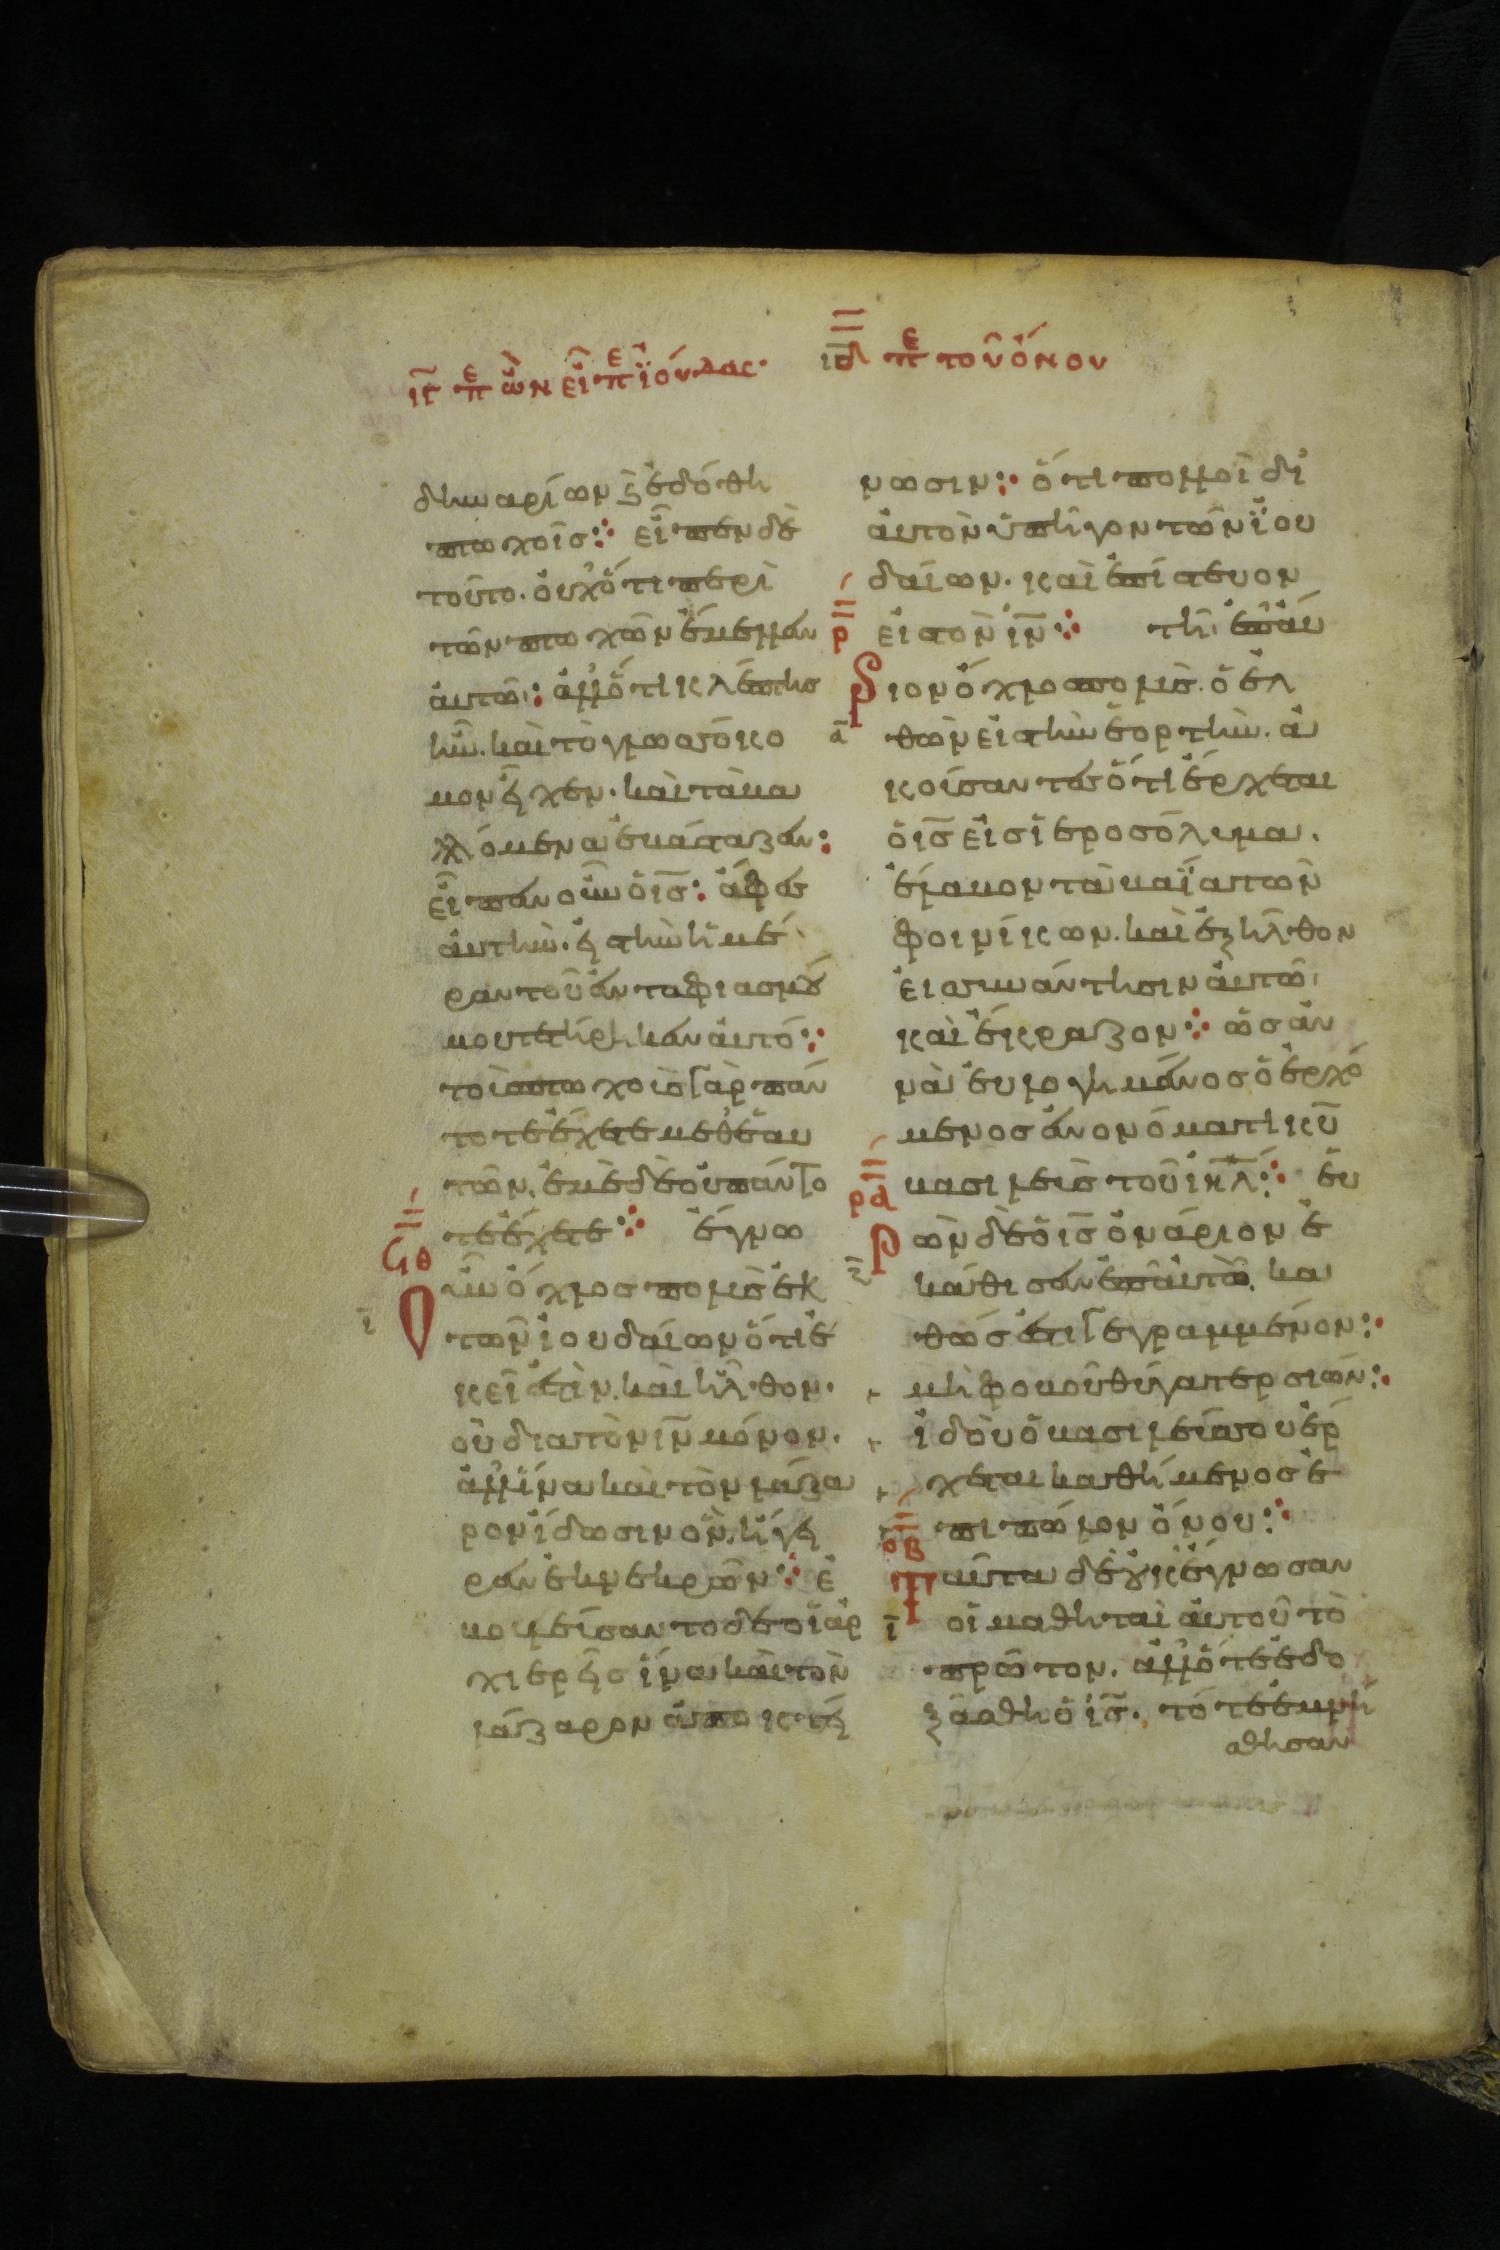 ιγ πε ὧν εἶπεν ἰούδας·
ιδ πε τοῦ ὄνου
δηναρίων ξ ἐδόθη
πτωχοῖσ⁘ εἶπεν δὲ
τοῦτο· οὐχ ὅτι περὶ
τῶν πτωχῶν ἔμελλεν
ἀυτῶ: ἀλλ ὅτι κλέπτησ
ἦν· καὶ τὸ γλωσσόκο
μον εἶχεν· καὶ τὰ βα
λλόμενα ἐβάσταζεν:
εἶπεν οὖν ὁ ισ̅: ἄφεσ
ἀυτὴν· εἰσ τὴν ἡμέ
ραν τοῦ ἐνταφιασμοῦ
μου τετήρηκεν ἀυτό⁘
τοὺσ πτωχοὺσ γὰρ πάν
τοτε ἔχετε μεθ ἑαυ
τῶν· ἐμὲ δὲ οὐ πάντο
τε ἔχετε⁘ ἔγνω
ϟθ
οὖν ὄχλοσ πολὺσ ἐκ
ι
Ο
τῶν ἰουδαίων ὅτι ἐ
κεῖ ἐστὶν· καὶ ἦλθον·
οὐ δια τὸν ιν̅ μόνον·
ἀλλ ἵνα καὶ τὸν λάζα
ρον ἴδωσιν ὃν ἤγει
ρεν ἐκ νεκρῶν⁘ ἐ
βουλεύσαντο δὲ οἱ ἀρ
χιερεῖσ ἵνα καὶ τὸν
λάζαρον ἀποκτεί
νωσιν⁘ ὅτι πολλοὶ δι
ἀυτὸν ὑπῆγον τῶν ἰου
δαίων· καὶ ἐπίστευον
ρ
εἰσ τὸν ιν̅⁘ τῇ ἐπαύ
ριον ὄχλοσ πολὺσ· ὁ ἐλ
α
θὼν εἰσ τὴν ἑορτὴν· ἀ
κούσαντεσ ὅτι ἔρχεται
ὁ ισ̅ εἰσ ἱεροσόλυμα·
ἔλαβον τὰ βαΐα τῶν
φοινίκων· καὶ ἐξῆλθον
εἰσ ὑπάντησιν ἀυτῶ·
καὶ ἔκραζον⁘ ὡσαν
νὰ ἐυλογημένοσ ὁ ἐρχό
μενοσ ἐν ονόματι κυ̅
ρα
βασιλεὺσ τοῦ ιηλ̅⁘ ἑυ
ρὼν δὲ ὁ ισ̅ ὀνάριον ἐ
ζ
κάθισεν ἐπ ἀυτῶ· κα
θώσ ἐστι γεγραμμένον⁘
μὴ φοβοῦ θύγατερ σιών⁘
ἰδοὺ ὁ βασιλεύσ σου ἔρ
χεται καθήμενοσ ἐ
πι πῶλον ὄνου⁘
ρβ
Ταῦτα δὲ οὐκ ἔγνωσαν
ι
οἱ μαθηταὶ ἀυτοῦ τὸ
πρῶτον· ἀλλ ὅτε ἐδο
ξάσθη ὁ ισ̅· τότε ἐμνή
σθησαν